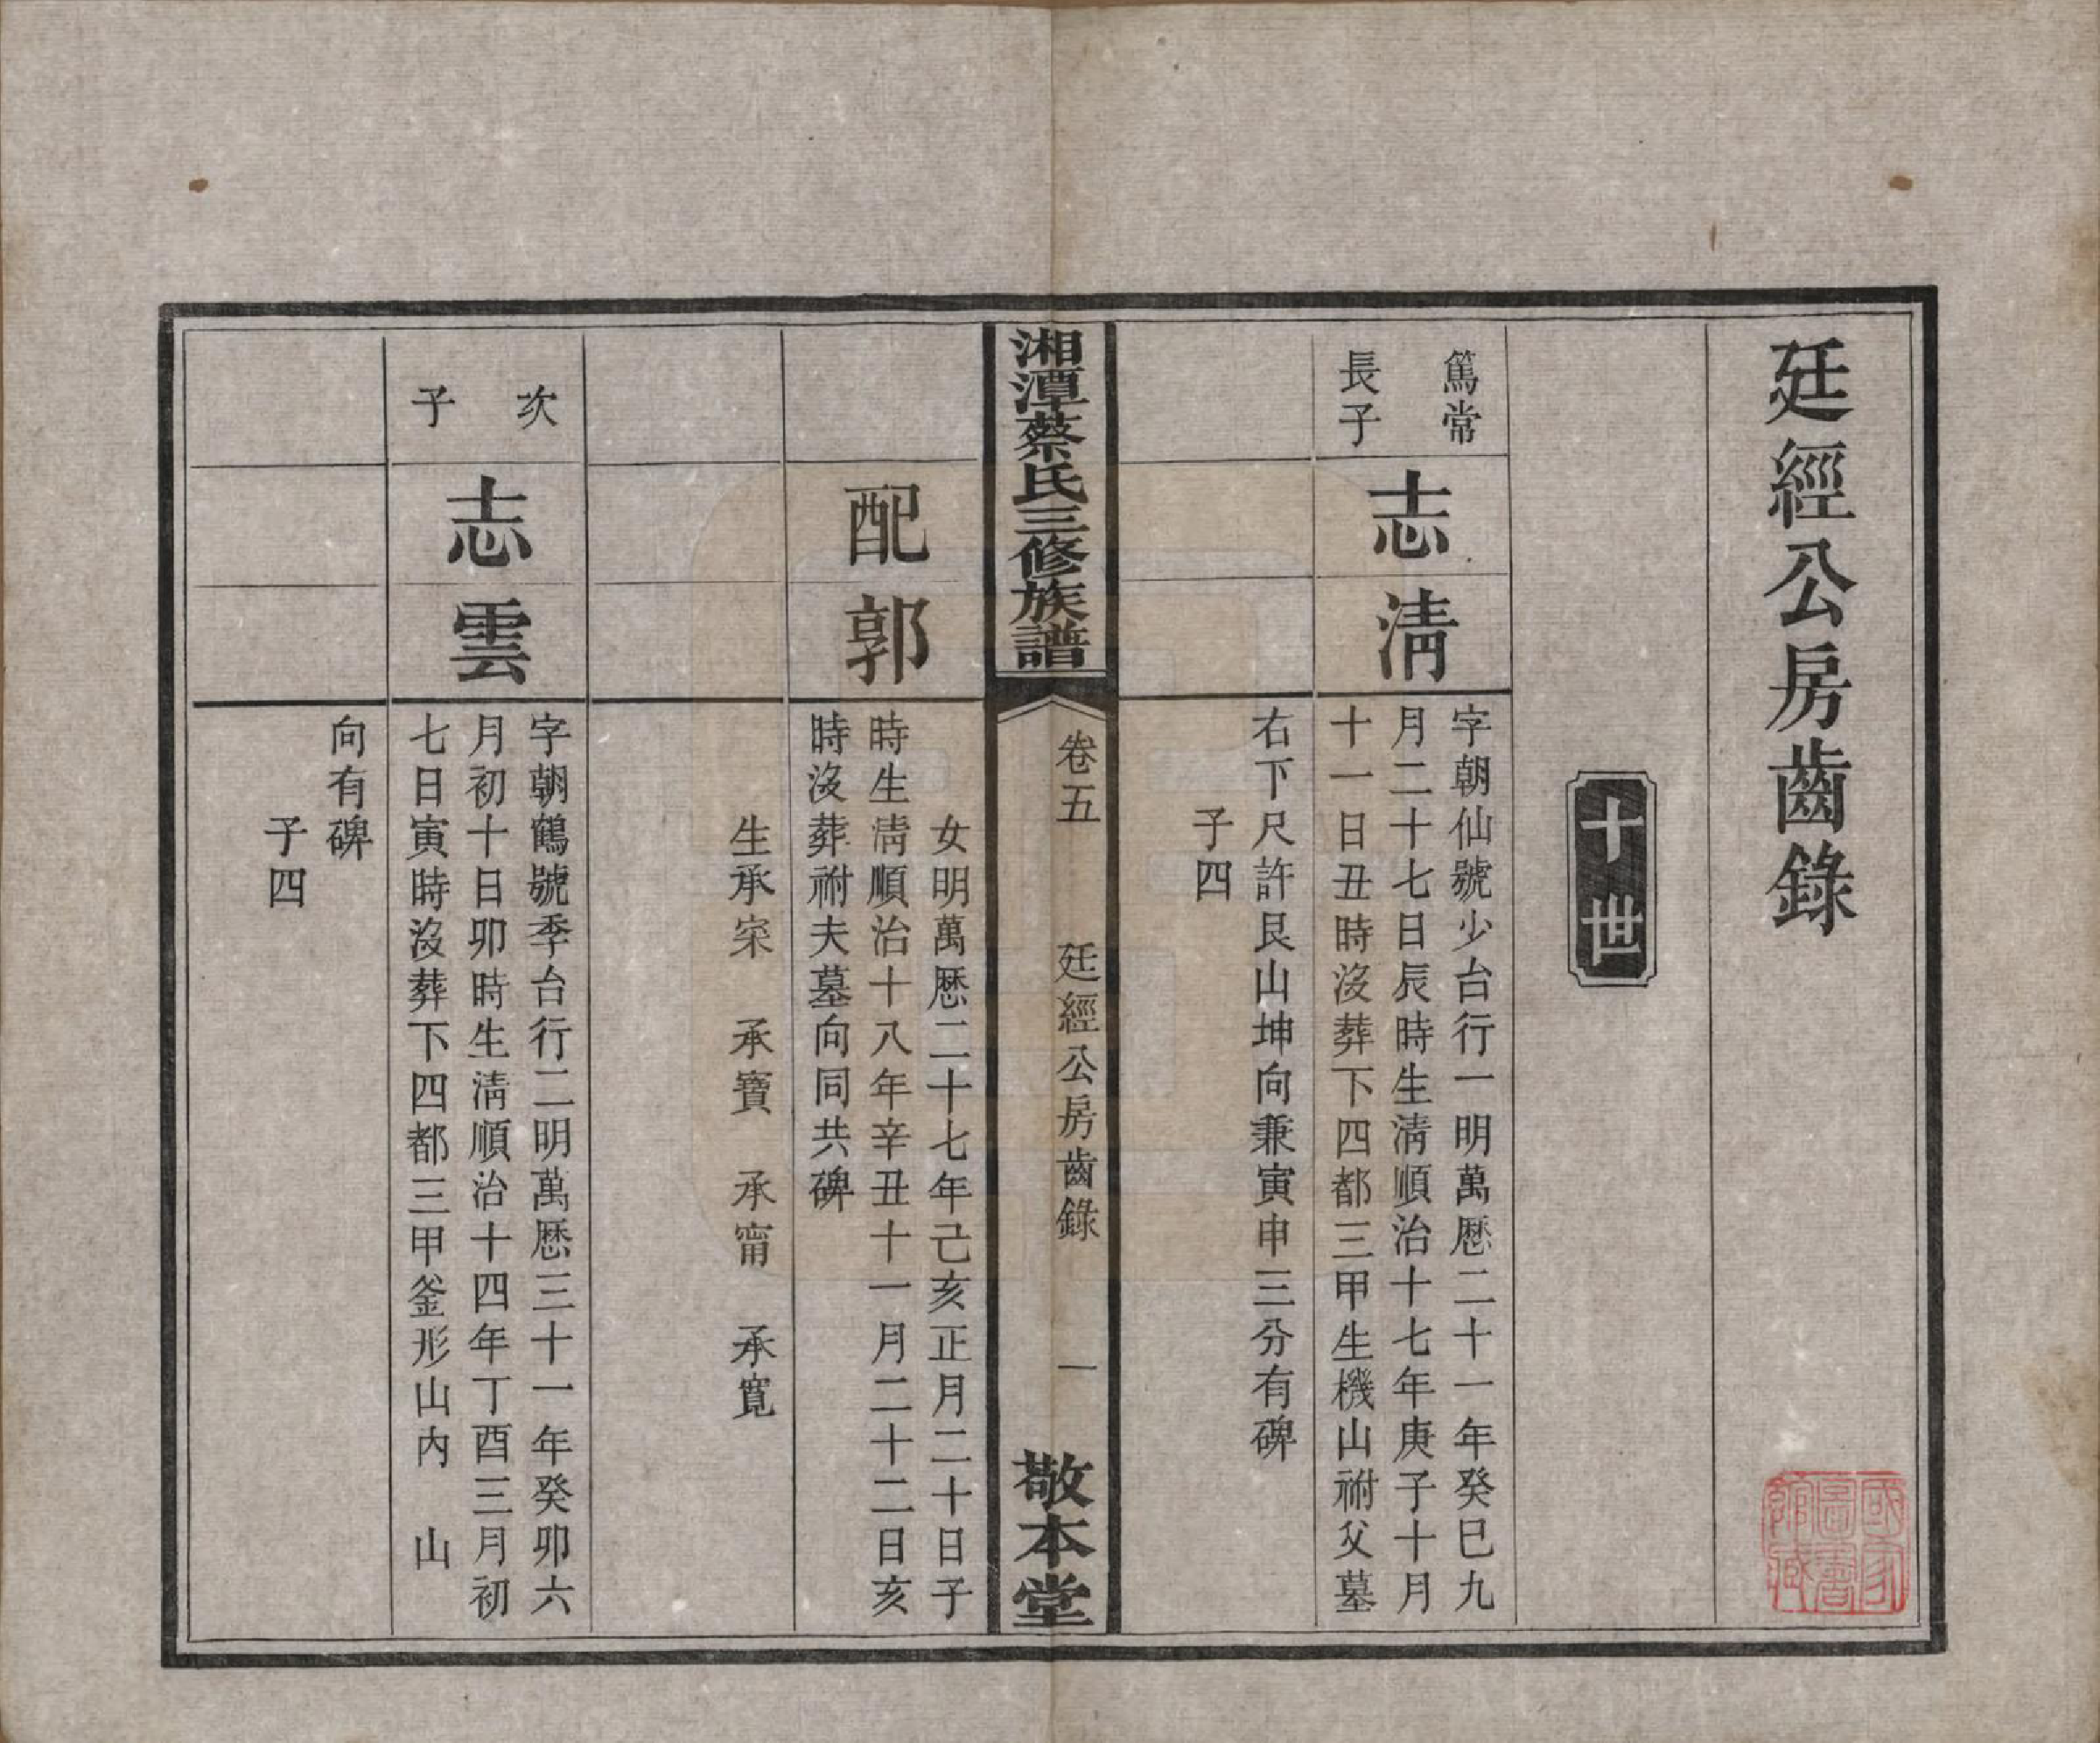 廷經公房齒錄
十世
篤常
長子
志淸
字朝仙號少台行一明萬厯二十一年癸巳九
月二十七日辰時生淸順治十七年庚子十月
十一日丑時沒葬下四都三甲生機山祔父墓
右下尺許艮山坤向兼寅申三分有碑
子四
湘潭蔡氏三修族譜
卷五
廷經公房齒錄
一
敬本堂
配郭
女明萬厯二十七年己亥正月二十日子
時生淸順治十八年辛丑十一月二十二日亥
時沒葬祔夫墓向同共碑
生承寀 承寶 承甯 承寬
次子
志雲
字朝鶴號季台行二明萬厯三十一年癸卯六
月初十日卯時生淸順治十四年丁酉三月初
七日寅時沒葬下四都三甲釜形山內 山
向有碑
子四
國家圖書館藏